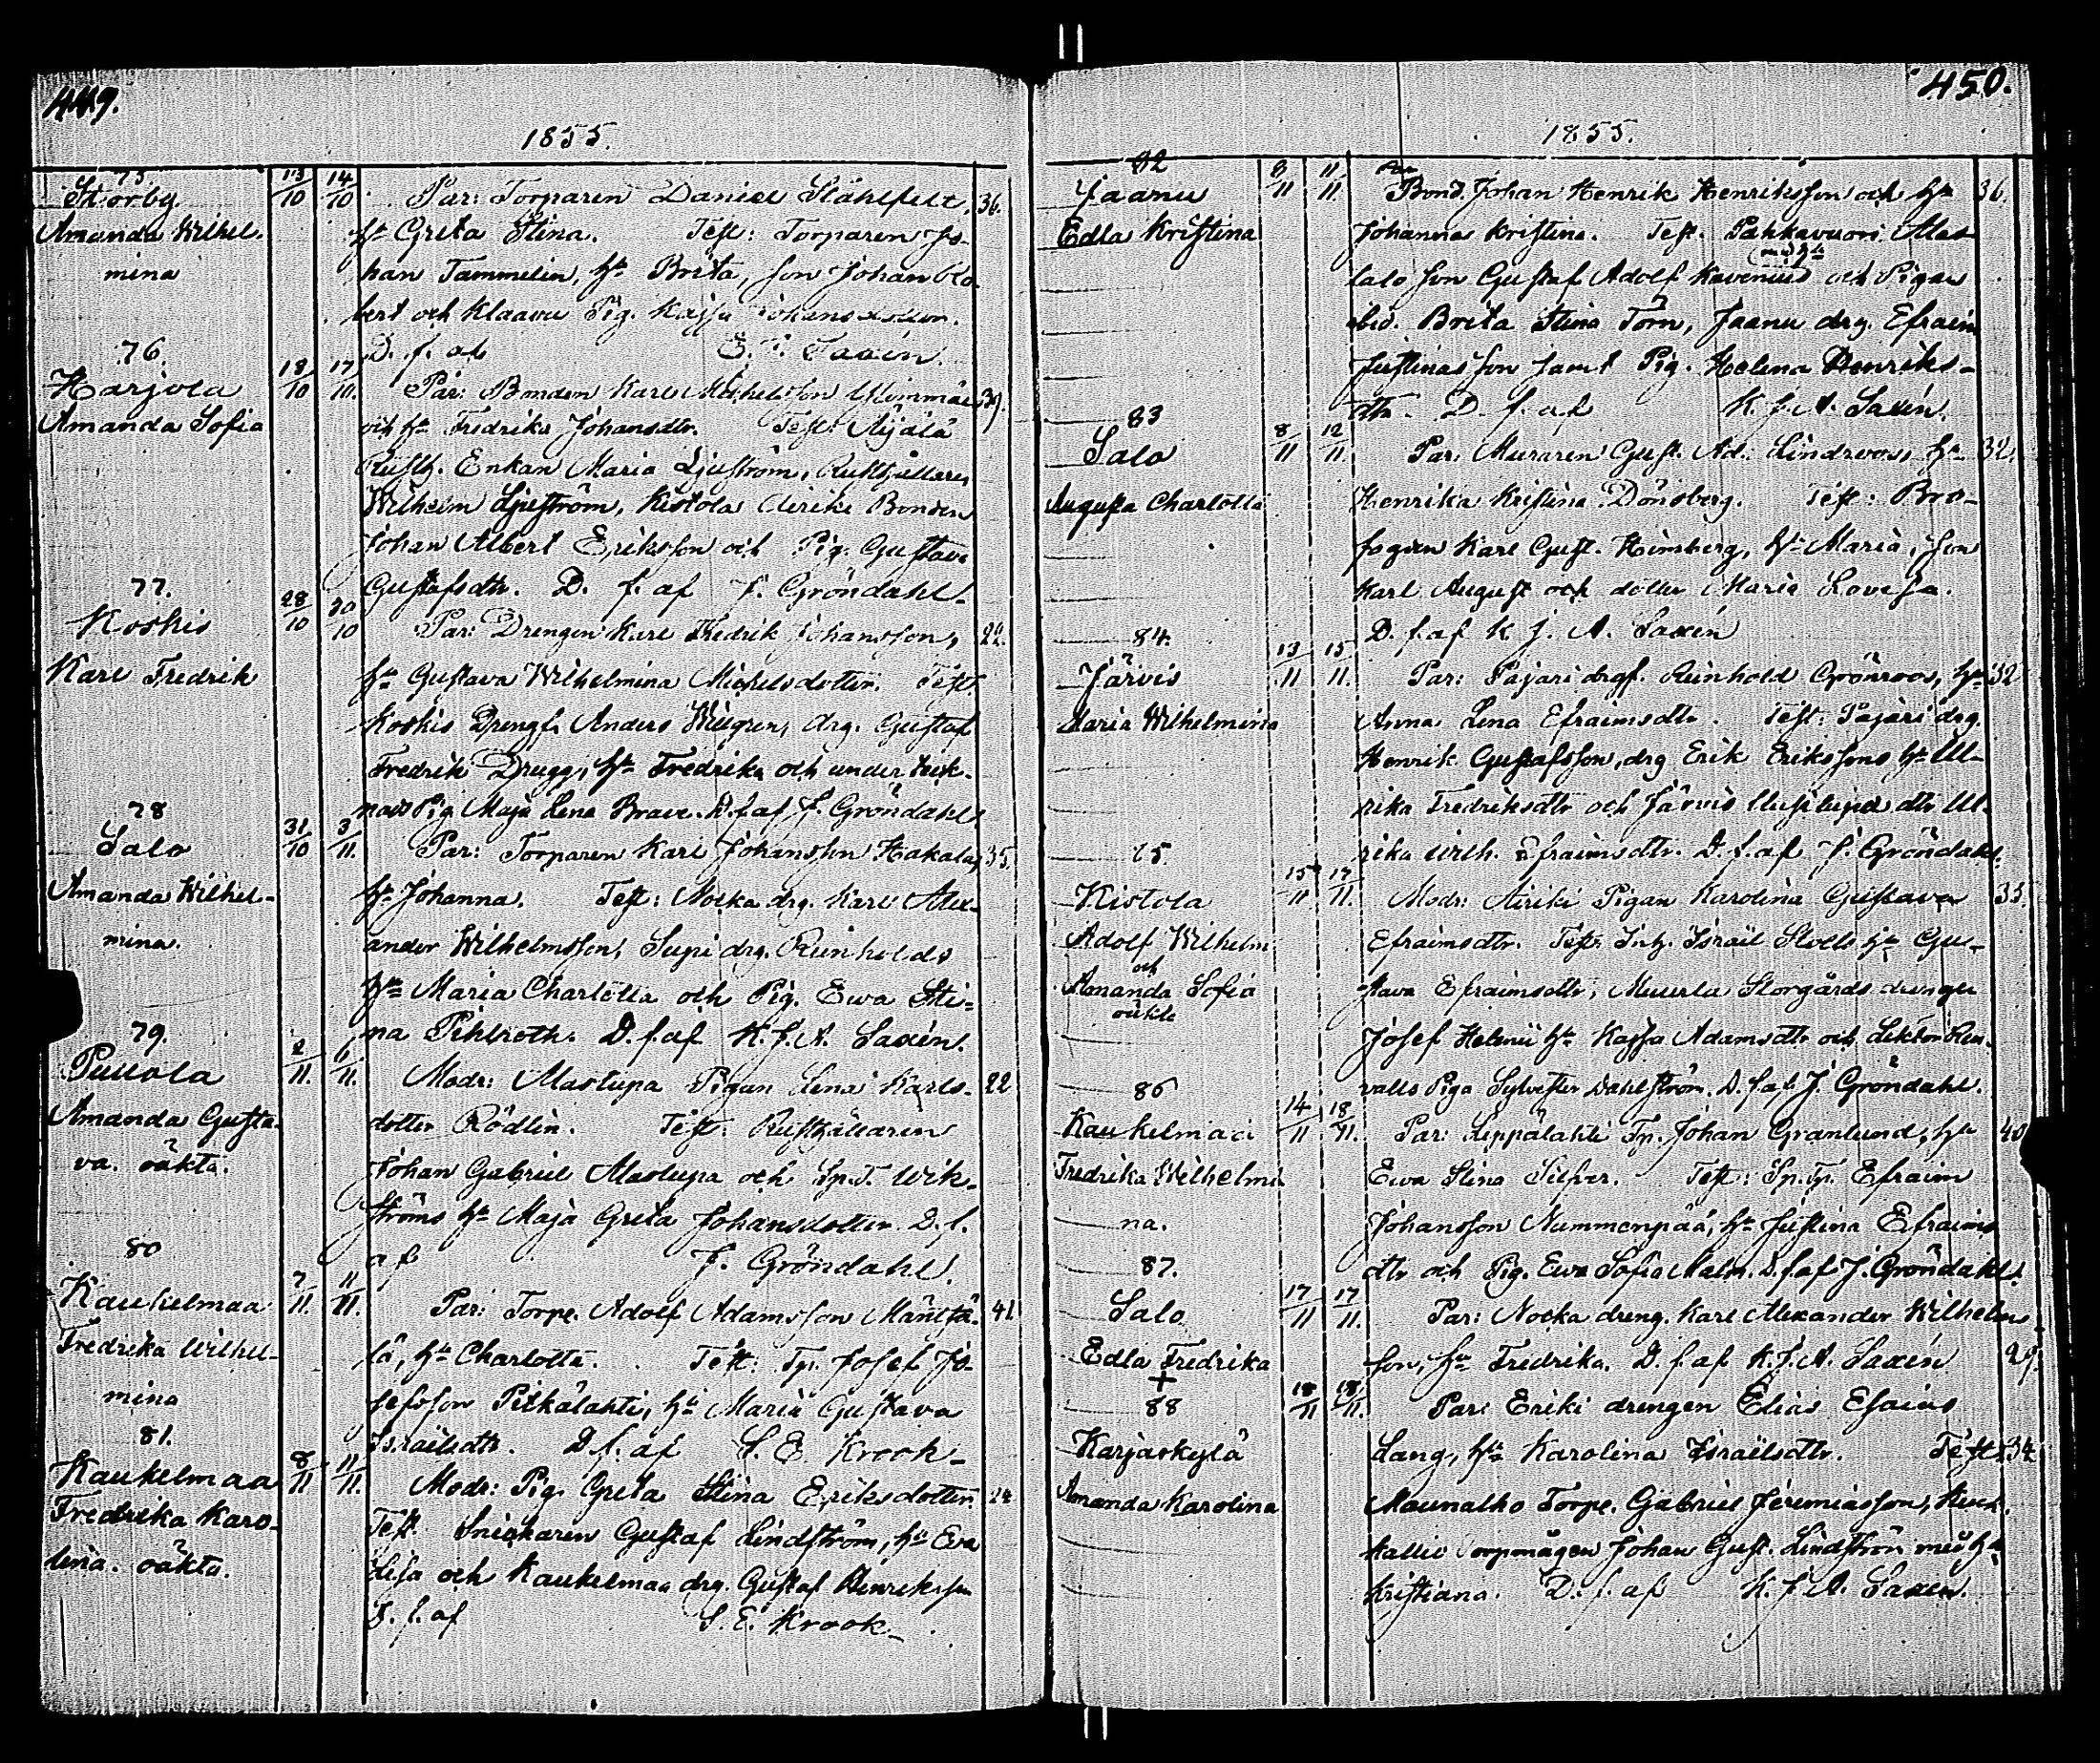 449.
1855.
75
Storby
Amanda Wilhel-
mina
13/10 14/10
Par: Torparen Daniel Ståhlfelt, 36.
hu Greta Stina. Test: Torparen Jo-
han Tammelin, hu Brita, son Johan Ro-
bert och Klaavu Pig. Kajsa Johansdotter.
D. f. af Saxén.
76
Harjola
Amanda Sofia
18/10 17/10.
Par: Bonden Karl Michelsson 39.
och hu Fredrika Johansdtr. Test: Äijälä
Rusth. Enkan Maria Ljuström, Rusthållaren
Wilhelm Ljuström, Kistola Airiki Bonden
Johan Albert Eriksson och Pig. Gustava
Gustafsdtr. D. f. af J. Gröndahl.
77.
Koskis
Karl Fredrik
28/10 30/10
Par: Drengen Karl Fredrik Johansson, 22.
hu Gustava Wilhelmina Michelsdotter. Test:
Koskis Drengf. Anders Widgren, drg. Gustaf
Fredrik Drugg, hu Fredrika och under teck-
nad Pig Maja Lena Brave. D. f. af J. Gröndahl
78
Salo
Amanda Wilhel-
mina.
31/10 3/11.
Par: Torparen Karl Johansson Hakala, 35.
hu Johanna. Test: Nocka drg. Karl Alex-
ander Wilhelmsson, Supi drg. Reinholds
hu Maria Charlotta och Pig. Ewa Sti-
na Pihlroth. D. f. af K. J. A. Saxén.
79.
Pullola
Amanda Gusta-
va. oäkta.
2/11. 6/11.
Modr: Maslupa Pigan Lena Karls- 22
dotter Rödlin. Test: Rusthållaren
Johan Gabriel Maslupa och Sp.T. Wik-
ströms hu Maja Greta Johansdotter. D. f.
af J. Gröndahl.
80
Kaukelmaa
Fredrika Wilhel-
mina
7/11. 11/11.
Par: Torpr. Adolf Adamsson Mäntsä- 41
lä, hu Charlotta. Test: Tp. Josef Jo-
sefsson Pitkälahti, hu Maria Gustava
Israelsdtr. D. f. af S. E. Krook-
81.
Kaukelmaa
Fredrika Karo-
lina. oäkta.
8/11 11/11.
Modr: Pig. Greta Stina Eriksdotter. 24
Test. Snickaren Gustaf Lindström, hu Eva
Lisa och Kaukelmaa drg. Gustaf Henriksson
D. f. af S. E. Krook-
450.
1855.
82
Jaanu
Edla Kristina
8/11 11/11.
Bond. Johan Henrik Henriksson och hu 36.
Johanna Kristina. Test. Pakkavuori Mas-
med hu
talo son Gustaf Adolf Kavenius och Pigan
ibid. Brita Stina Törn, Jaanu drg. Efraim
Justinasson samt Pig. Helena Henriks-
dtr. D. f. af K. J. A. Saxén.
83
Salo
Augusta Charlotta
8/11 12/11.
Par: Muraren Gust. Ad. Lindroos, hu 32.
Henrika Kristina Dönsberg. Test: Bro-
fogden Karl Gust. Heinsberg, hu Maria, son
Karl August och dotter Maria Lovisa.
D. f. af K. J. A. Saxén
84.
Järvis
Maria Wilhelmina
13/11 15/11.
Par: Pajari drgf. Reinhold Grönroos, hu 32
Anna Lena Efraimsdtr. Test: Pajari drg.
Henrik Gustafsson, drg Erik Erikssons hu Ul-
rika Fredriksdtr och Järvis dtr Ul-
rika Wilh. Efraimsdtr. D. f. af J. Gröndahl.
85.
Kistola
Adolf Wilhelm
och
Amanda Sofia
oäkta
15/11 17/11.
Modr: Airiki Pigan Karolina Gustava 33.
Efraimsdtr. Test: Inh. Israel Slvels hu Gu-
stava Efraimsdtr, Muurla Storgårds drengen
Josef Helmi hu Kajsa Adamsdtr och Lektor Ren-
valls Piga Sylvester Dahlström. D. f. af J. Gröndahl.
86
Kaukelmaa
Fredrika Wilhelmi-
na.
14/11 18/11.
Par: Leppälahti Tp. Johan Granlund, hu 40
Ewa Stina Silfver. Test: Sp.Tp. Efraim
Johansson Nummenpää, hu Justina Efraims
dtr och Pig. Ewa Sofia Malm. D. f. af J. Gröndahl.
87.
Salo
Edla Fredrika
+
17/11 17/11.
Par: Nocka dreng. Karl Alexander Wilhelms-
son, hu Fredrika. D. f. af K. J. A. Saxén 29.
88
Karjaskylä
Amanda Karolina
18/11 18/11.
Par: Eriki drengen Elias Esaias
Lang, hu Karolina Israelsdtr. Test: 34
Maunalho Torpr. Gabriel Jeremiasson,
kallio Torpmågen Johan Gust. Lindström med hu
Kristiana. D. f. af K. J. A. Saxén.